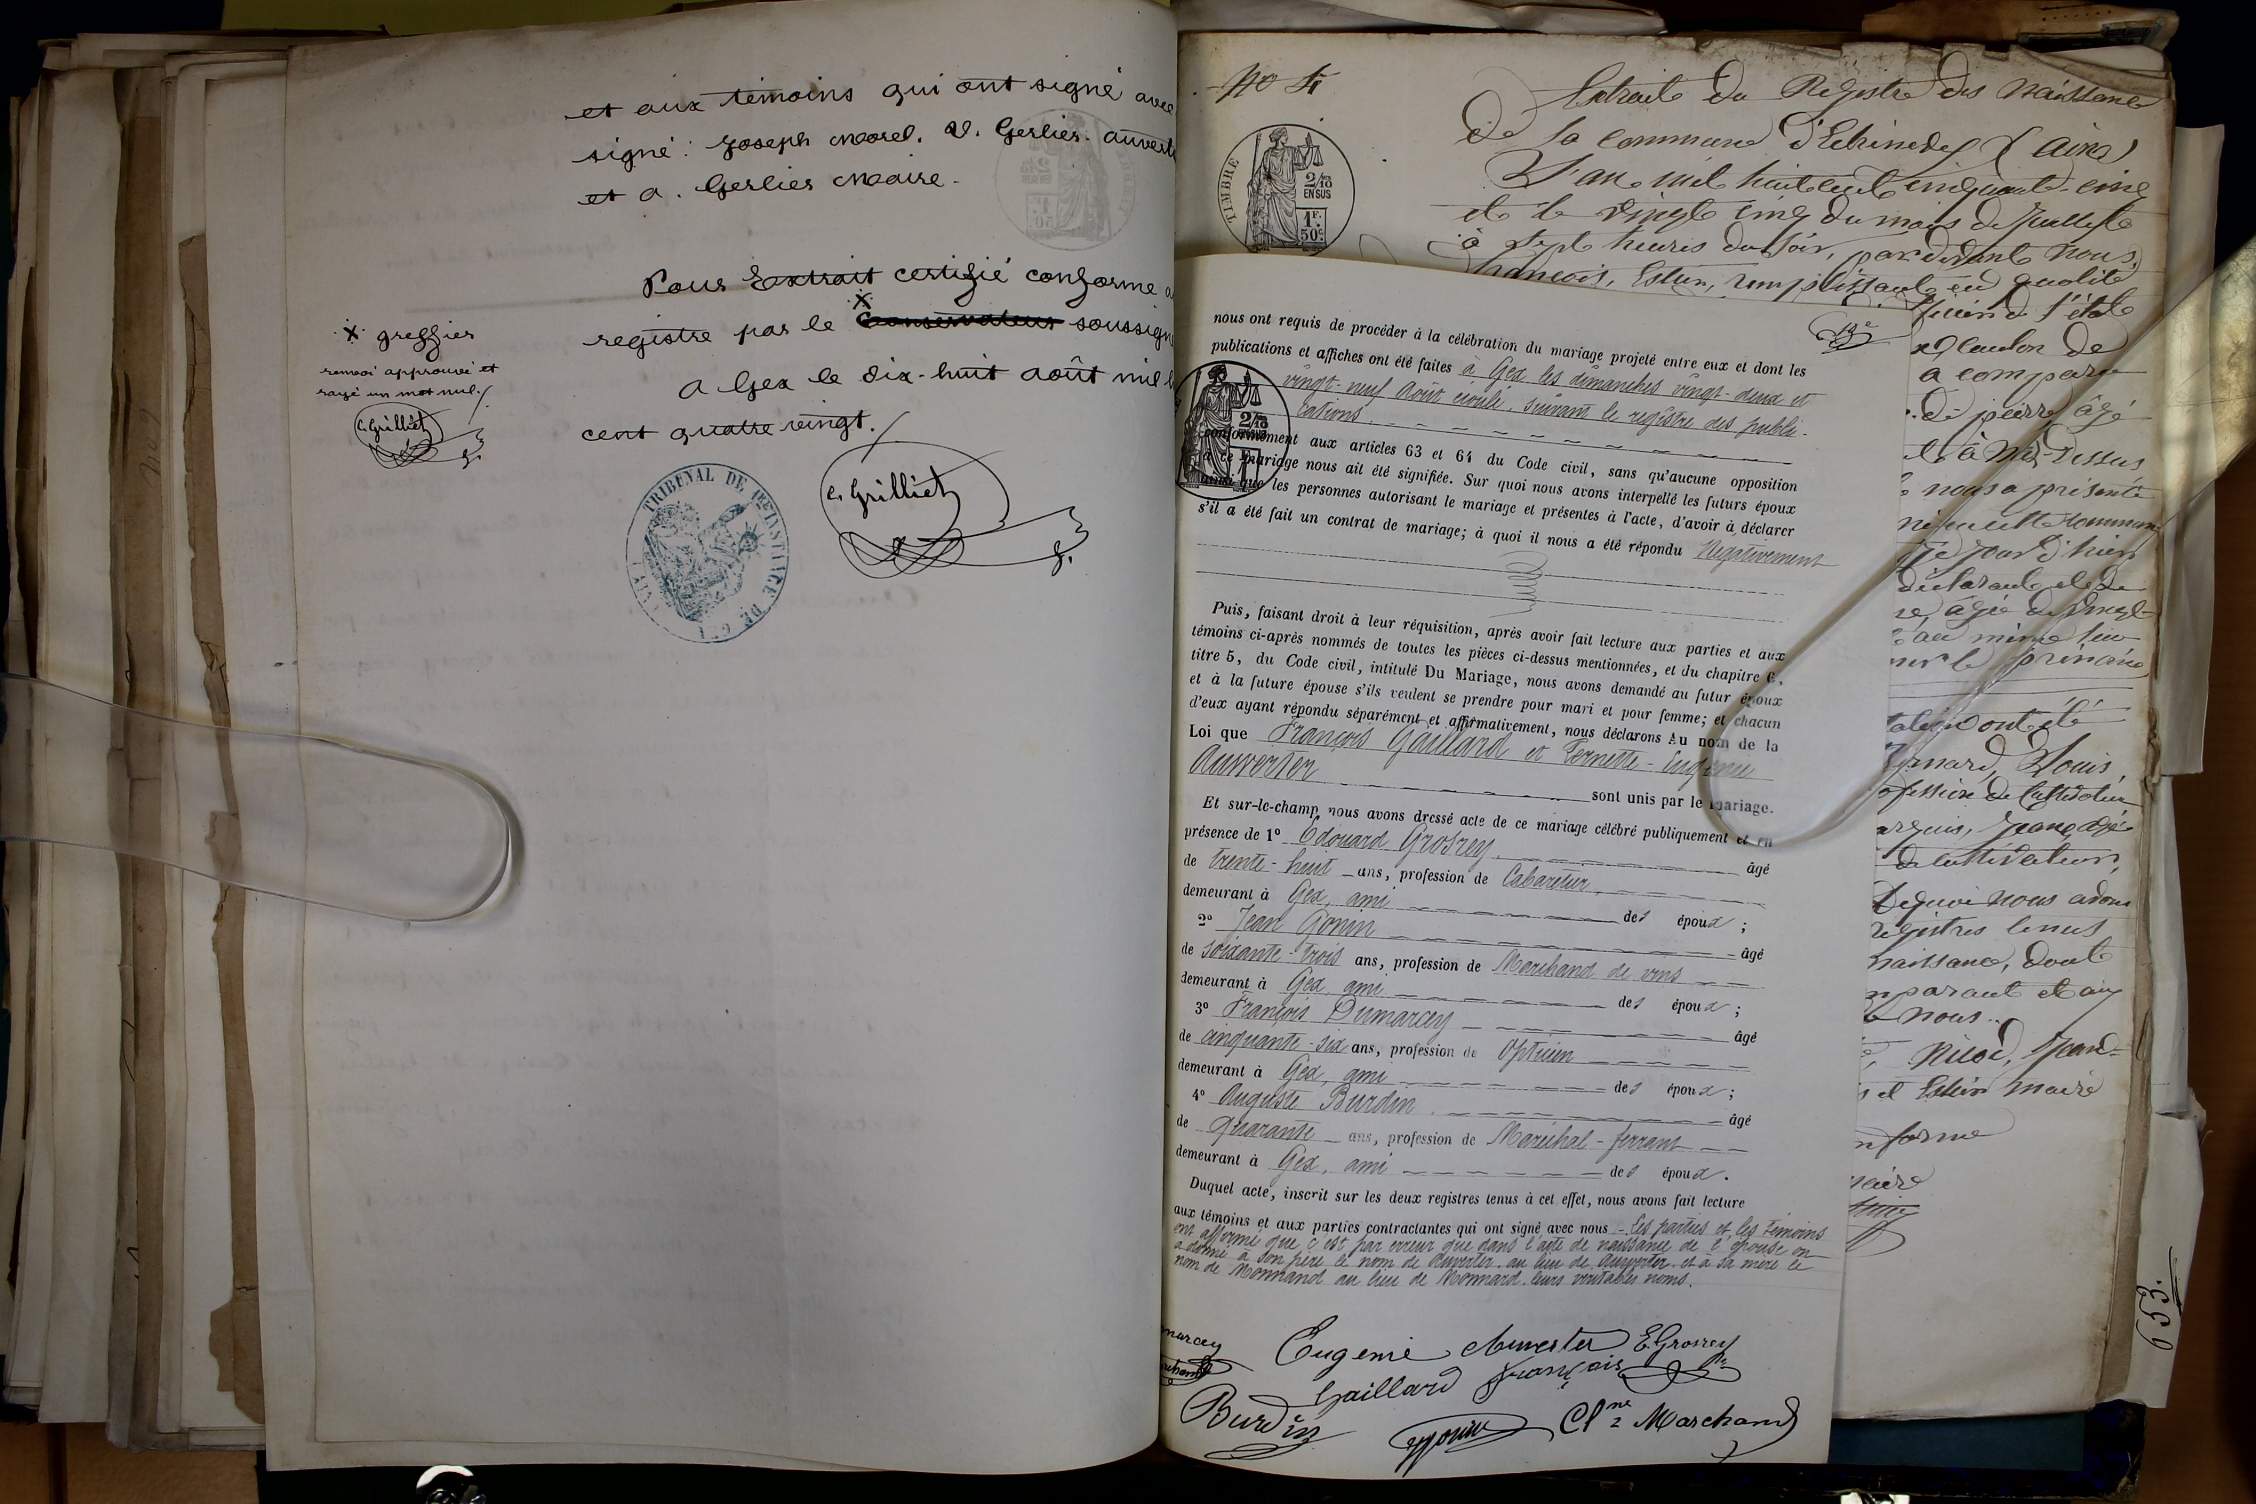 et aux témoins qui ont signé avec
signé: Joseph Morel. V. Gerlier. Auverte
et A. Gerlier Maire.
Pour Extrait certifié conforme
registre par le Conservateur soussign
A Gex le dix-huit août mil
cent quatre vingt./.
x greffier
renvoi approuvé et
rayé un mot nul./.
C. Grilliet
C. Grilliet
TRIBUNAL DE 1ERE INSTANCE DE GEX (AIN)
No 4
TIMBRE
2/10
EN SUS
1F.
50c
Extrait du Registre des Naissances
de la commune d'Echenevex (Ain)
L'an mil huit cent cinquante-cinq
et le vingt cinq du mois de Juillet
à sept heures du soir, pardevant nous,
François, Estier, remplissant en qualité
13e
nous ont requis de procéder à la célébration du mariage projeté entre eux et dont les
publications et affiches ont été faites à Gex les dimanches vingt-deux et
vingt-neuf Août écoulé, suivant le registre des publi-
cations.
conformément aux articles 63 et 64 du Code civil, sans qu'aucune opposition
à ce mariage nous ait été signifiée. Sur quoi nous avons interpellé les futurs époux
ainsi que les personnes autorisant le mariage et présentes à l'acte, d'avoir à déclarer
s'il a été fait un contrat de mariage; à quoi il nous a été répondu Négativement
Puis, faisant droit à leur réquisition, après avoir fait lecture aux parties et aux
témoins ci-après nommés de toutes les pièces ci-dessus mentionnées, et du chapitre 6,
titre 5, du Code civil, intitulé Du Mariage, nous avons demandé au futur époux
et à la future épouse s'ils veulent se prendre pour mari et pour femme; et chacun
d'eux ayant répondu séparément et affirmativement, nous déclarons Au nom de la
Loi que François Gaillard et Fernette-Eugénie
Auwerter
sont unis par le mariage.
Et sur-le-champ nous avons dressé acte de ce mariage célébré publiquement et en
présence de 1º Edouard Grosrey âgé
de trente-huit ans, profession de Cabaretier
demeurant à Gex, ami des époux;
2º Jean Gonin âgé
de soixante-trois ans, profession de Marchand de vins
demeurant à Gex, ami des époux;
3º François Dumarcey âgé
de cinquante-six ans, profession de Opticien
demeurant à Gex, ami des époux;
4º Auguste Burdin âgé
de quarante ans, profession de Maréchal-ferrant
demeurant à Gex, ami des époux.
Duquel acte, inscrit sur les deux registres tenus à cet effet, nous avons fait lecture
aux témoins et aux parties contractantes qui ont signé avec nous - Les parties et les témoins
ont affirmé que c'est par erreur que dans l'acte de naissance de l'épouse on
a donné à son père le nom de Auverter au lieu de Auwerter et à sa mère le
nom de Monnand au lieu de Monnard leurs véritables noms.
marcey
Eugenie Auwerter E. Grosrey
Gaillard François
Burdin
Gonin
Clne Marchand
officier de l'état
canton de
a comparu
pierre âgé
nous a présenté
jour d'hier
déclarant et de
âgée de vingt-
au même lieu
prénom
ont été
Louis,
profession de Cultivateur
Jean, âgé
de cultivateur,
De quoi nous avons
registres tenus
naissance, dont
comparant et aux
nous.
Jean-
et Estier maire
conforme
maire
653.